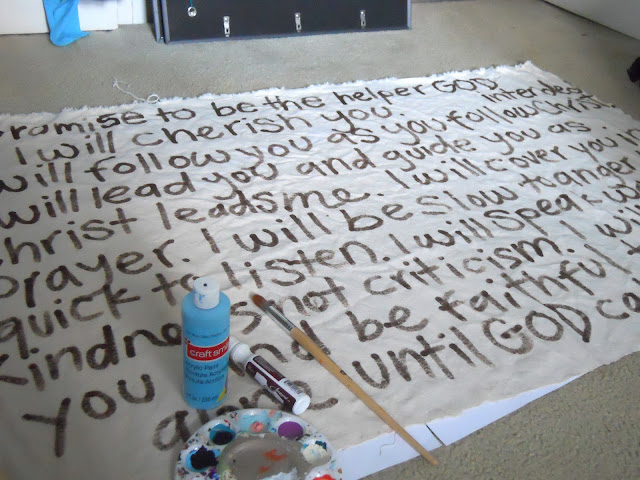 promise to be the helper GOD
I will cherish you
will follow you as you follow Christ
will lead you and guide you as
Christ leads me. I will cover you in
prayer. I will be slow to anger
quick to listen. I will speak
kindness not criticism. I
you and be faithful
until GOD
craft sm
Acrylic Paint